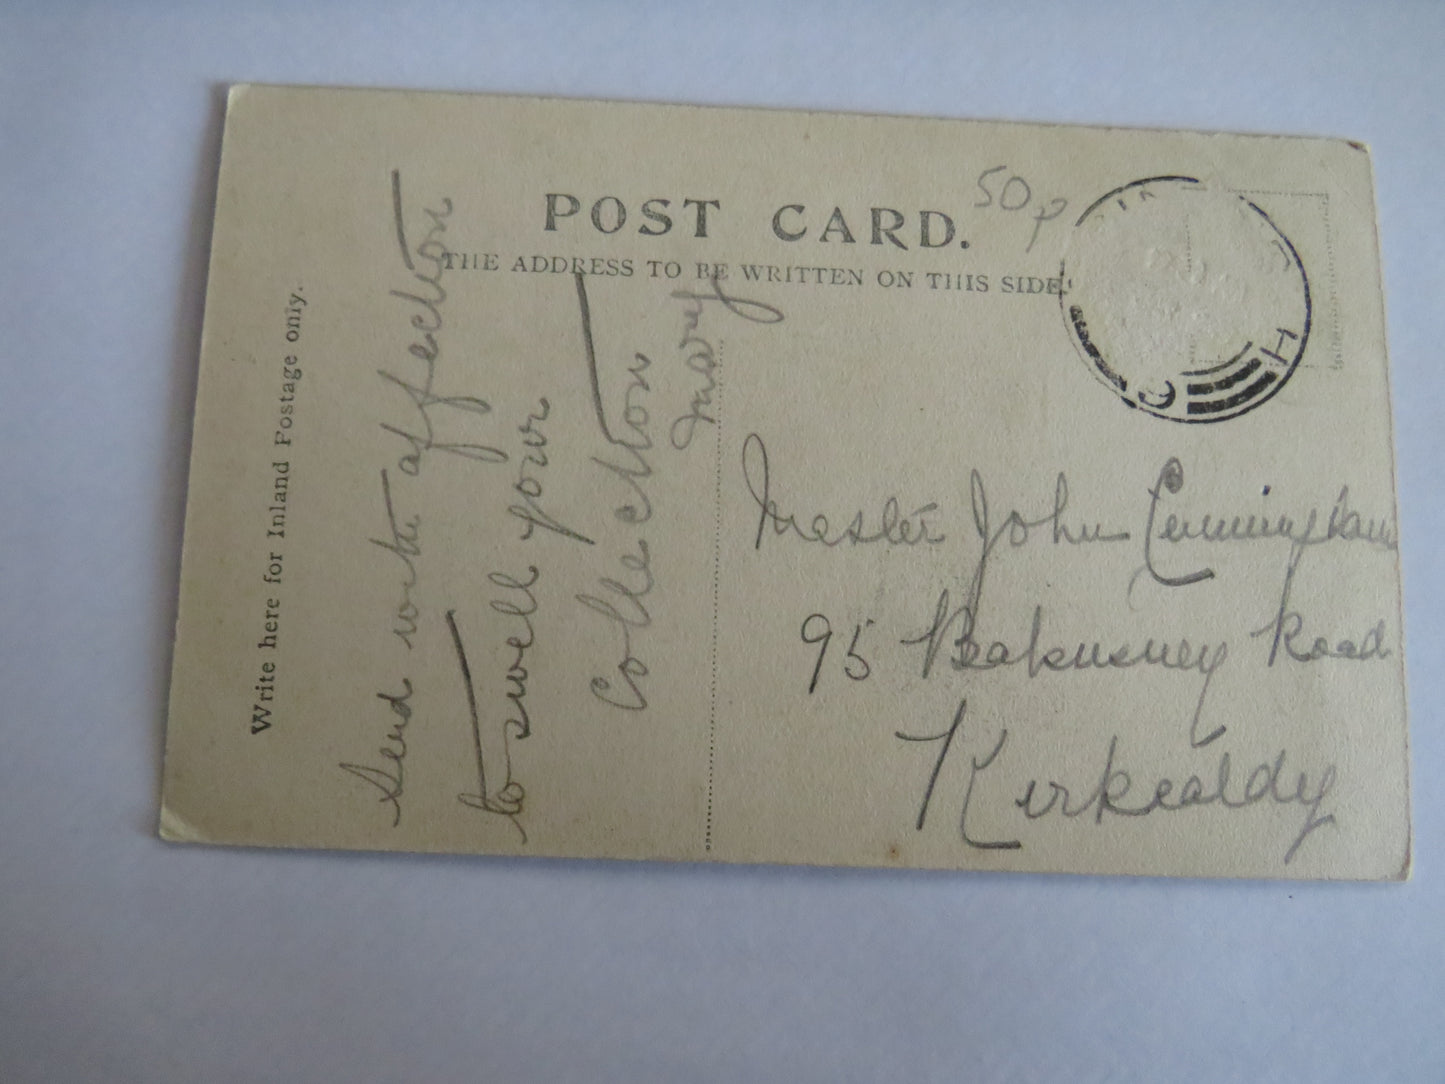 POST CARD.
THE ADDRESS TO BE WRITTEN ON THIS SIDE.
50p
Write here for Inland Postage only.
Send with affection
to swell your
Collection
Mary
Master John Cunningham
95 Road
Kirkcaldy